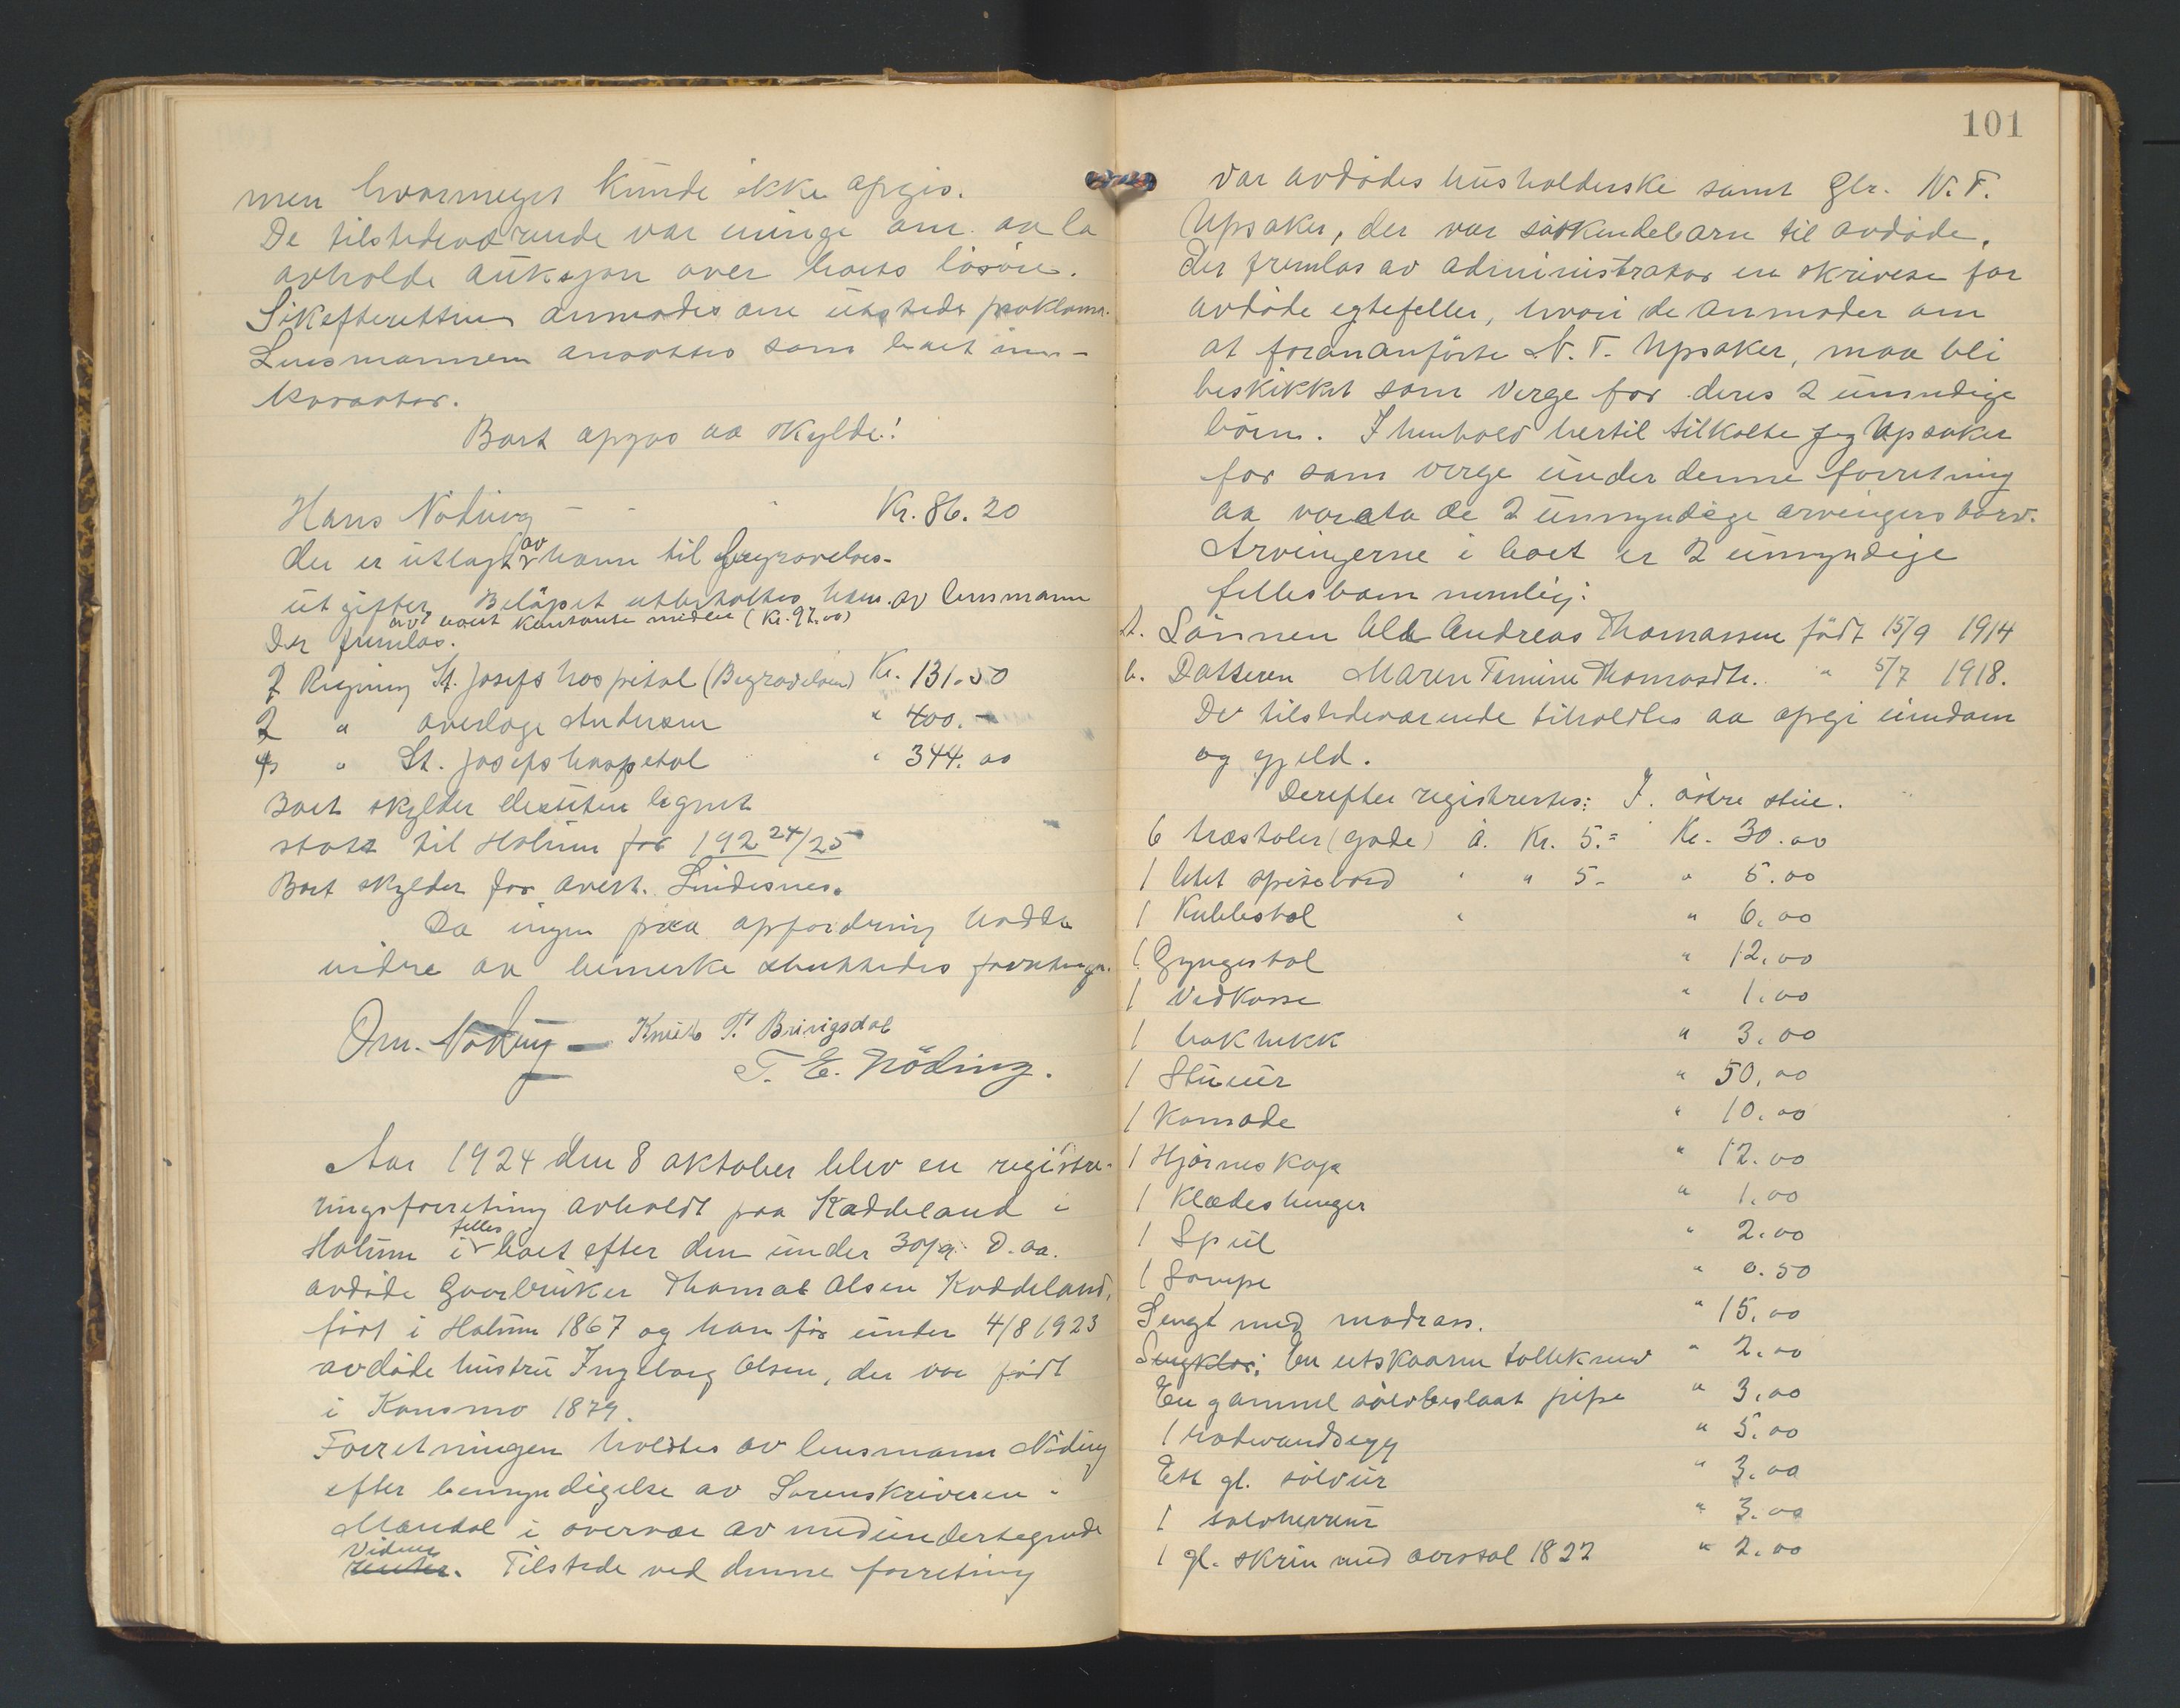 men hvormeget kunde ikke opgis.
De tilstedeværende var enige om aa la
avholde auksjon over boets lösöre.
Skifteretten anmodes om utstede proklama.
Lensmannen ansattes som boet in-
korator.
Boet opgas aa skylde:
Hans Nöding Kr. 86.20
der er utlagt av ham til begravelses-
utgifter. Belöpet utbetaltes ham av lensmann
av boets kontante midler (Kr. 97.00)
Der fremlas.
2 Regning St. Josefs hospital (Begravelsen) Kr. 131.50
2 " overlæge Andersen " 400.-
4 " St. Josefs hospital " 344.00
Boet skylder desuten lignet
skatt til Holum for 192 24/25
Boet skylder for avert. Lindesnes.
Da ingen paa opfordring hadde
videre aa bemerke sluttedes forretningen.
Om. Nöding Knut T. Bringsdal
T. E. Nöding.
Aar 1924 den 8 oktober blev en registre-
ringsforretning avholdt paa Kaddeland i
Holum i felles boet efter den under 30/9 d.aa.
avdöde Gaardbruker Thomas Olsen Kaddeland,
födt i Holum 1867 og han för under 4/8 1923
avdöde hustru Ingeborg Olsen, der var födt
i Konsmo 1879.
Forretningen holdtes av lensmann Nöding
efter bemyndigelse av Sorenskriveren i
Mandal i overvær av medundertegnede
vidner. Tilstede ved denne forretning
101
var avdödes husholderske samt Gbr. N. T.
Upsaker, der var söskendebarn til avdöde.
Der fremlas av administrator en skrivese for
avdöde egtefeller, hvori de anmoder om
at forananförte N. T. Upsaker, maa bli
beskikket som verge for deres 2 umndige
börn. I henhold hertil tilkalte jeg Upsaker
for som verge under denne forretning
aa vareta de 2 umyndige arvingers tarv.
Arvingerne i boet er 2 umyndige
fellesbarn nemlig:
a. Sönnen Ole Andreas Thomassen födt 15/9 1914
b. Datteren Maren Temine Thomasdtr. " 5/7 1918.
De tilstedeværende tilholdtes aa opgi eiendom
og gjeld.
Derefter registrertes: I. östre stue.
6 træstoler (gode) à. Kr. 5.= Kr. 30.00
1 litet spisebord " " 5- " 5.00
1 Kubbestol " " 6.00
1 Gyngestol " 12.00
1 Vedkasse " 1.00
1 bokhekk " 3.00
1 Stueur " 50.00
1 Komode " 10.00
1 Hjörneskap " 12.00
1 Klædeshenger " 1.00
1 Speil " 2.00
1 Lampe " 0.50
Sengt med madrass. " 15.00
Sengklær: En utskaaren tollekniv " 2.00
En gammel sölvbeslaat pipe " 3.00
1 hodevandsegg " 5.00
Ett gl. sölvur " 3.00
1 " 3.00
1 gl. skrin med aarstal 1822 " 2.00